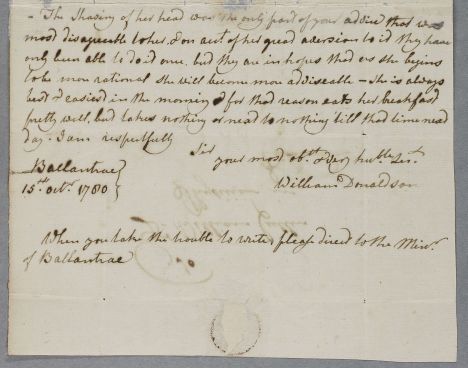 - The Shaving of her head was the only part of your advice that was
most disagreeable to her, & on act. of her great aversion to it they have
only been able to do it once, but they are in hopes that as she begins
to be more rational she will become more adviseable - She is always
best & easiest in the morning & for that reason eats her breakfast
pretty well, but takes nothing or next to nothing till that time next
day. I am respectfully
Sir
your most obt. & very huble Sert.
William Donaldson
Ballantrae
15th. octr. 1780
When you take the trouble to write, please direct to the Minr.
of Ballantrae